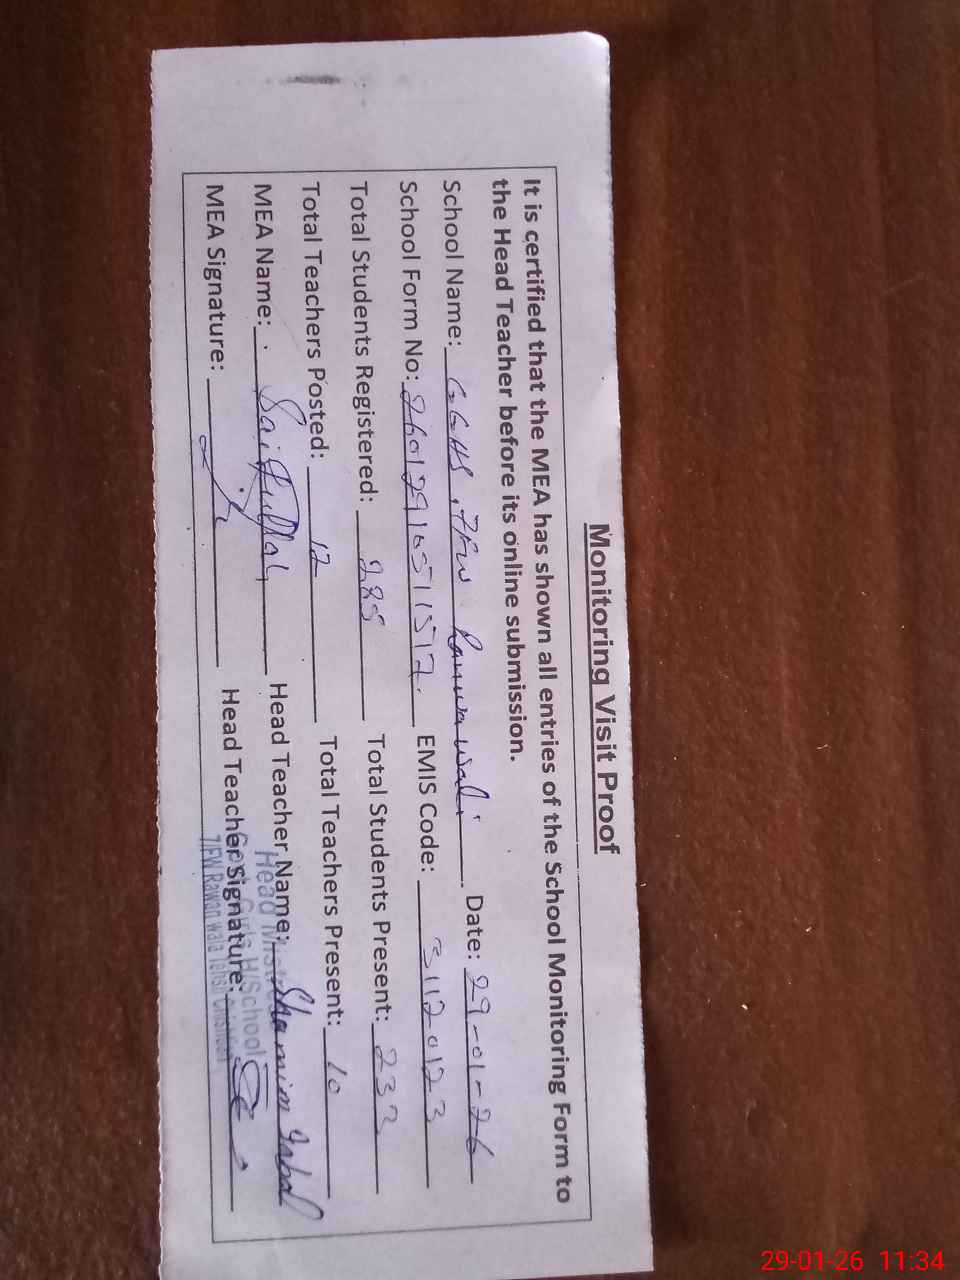 Monitoring Visit Proof
It is certified that the MEA has shown all entries of the School Monitoring Form to
the Head Teacher before its online submission.
School Name: GGHS, 7FW Rawanwali Date: 29-01-26
School Form No: 26012916511517 EMIS Code: 31120123
Total Students Registered: 285 Total Students Present: 233
Total Teachers Posted: 12 Total Teachers Present: 10
MEA Name: Saifullah Head Teacher Name: Shamim
MEA Signature: Head Teacher Signature:
Head
Girls H/School
7/FW Rawan wala Tehsil
29-01-26 11:34